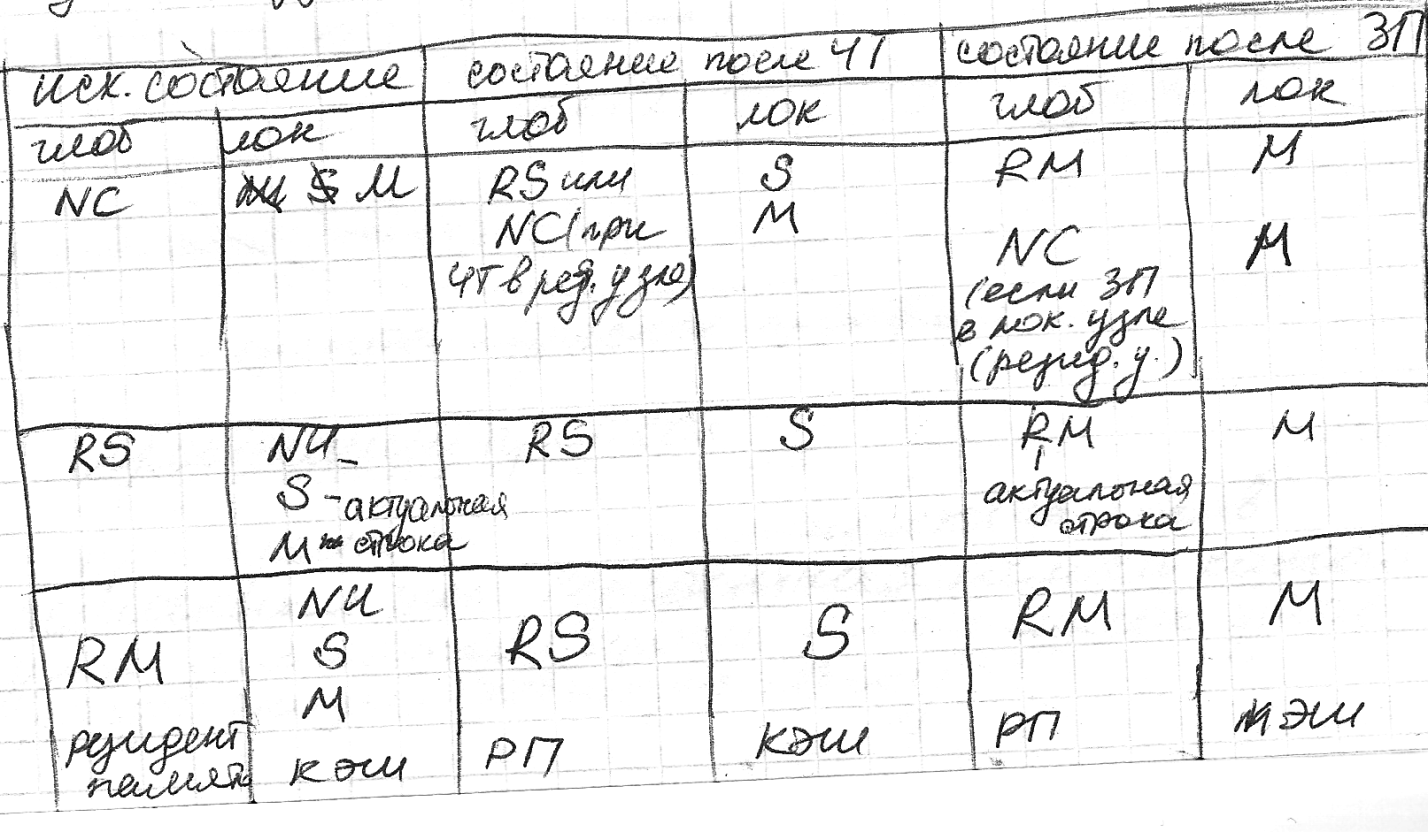 исх. состояние состояние после ЧТ состояние после ЗП
глоб лок глоб лок глоб лок
NC M RS или S RM M
NC (при M NC M
ЧТ в рез. узле) (если ЗП
в лок. узле
(резид. у.)
RS NU - RS S RM M
S - актуальная актуальная
M строка строка
RM NU RS S RM M
S
M
резидент кэш РП кэш РП кэш
память